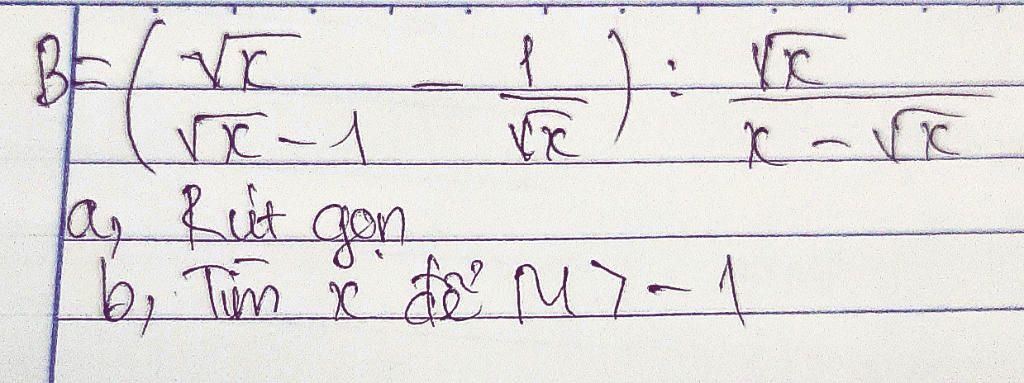 B = ( √x / (√x - 1) - 1 / √x ) : √x / (x - √x)
a, Rút gọn
b, Tìm x để M > -1